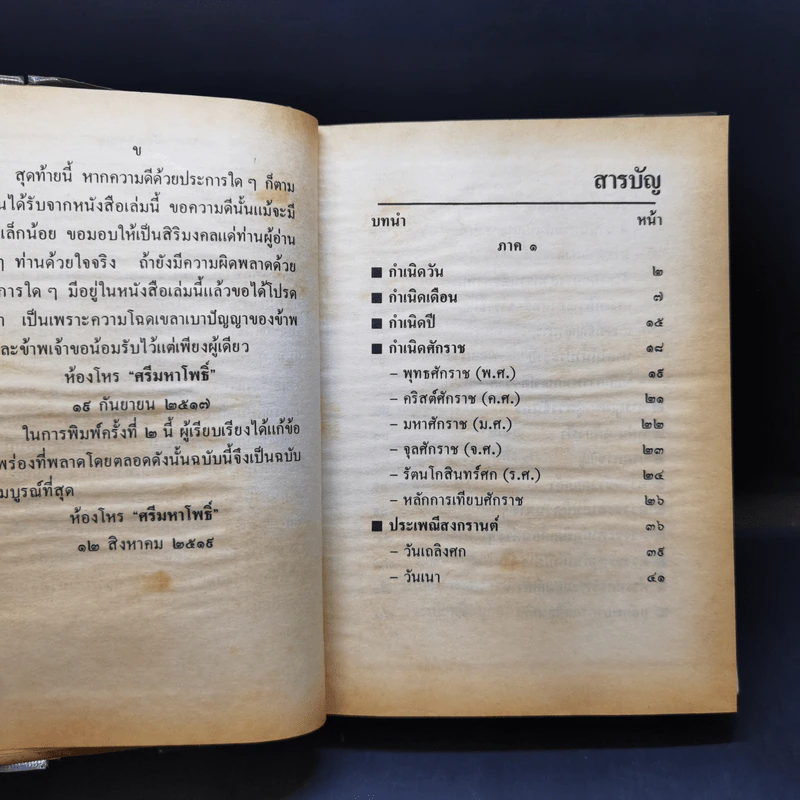 ข
สุดท้ายนี้ หากความดีด้วยประการใด ๆ ก็ตาม
นได้รับจากหนังสือเล่มนี้ ขอความดีนั้นแม้จะมี
เล็กน้อย ขอมอบให้เป็นสิริมงคลแด่ท่านผู้อ่าน
ๆ ท่านด้วยใจจริง ถ้ายังมีความผิดพลาดด้วย
การใด ๆ มีอยู่ในหนังสือเล่มนี้แล้วขอได้โปรด
เป็นเพราะความโฉดเขลาเบาปัญญาของข้าพ
ละข้าพเจ้าขอน้อมรับไว้แต่เพียงผู้เดียว
ห้องโหร “ศรีมหาโพธิ์”
๑๙ กันยายน ๒๕๑๗
ในการพิมพ์ครั้งที่ ๒ นี้ ผู้เรียบเรียงได้แก้ข้อ
พร่องที่พลาดโดยตลอดดังนั้นฉบับนี้จึงเป็นฉบับ
มบูรณ์ที่สุด
ห้องโหร “ศรีมหาโพธิ์”
๑๒ สิงหาคม ๒๕๑๙
สารบัญ
บทนำ หน้า
ภาค ๑
■ กำเนิดวัน ๒
■ กำเนิดเดือน ๗
■ กำเนิดปี ๑๕
■ กำเนิดศักราช ๑๘
– พุทธศักราช (พ.ศ.) ๑๙
– คริสต์ศักราช (ค.ศ.) ๒๑
– มหาศักราช (ม.ศ.) ๒๒
– จุลศักราช (จ.ศ.) ๒๓
– รัตนโกสินทร์ศก (ร.ศ.) ๒๔
– หลักการเทียบศักราช ๒๖
■ ประเพณีสงกรานต์ ๓๖
– วันเถลิงศก ๓๙
– วันเนา ๔๑